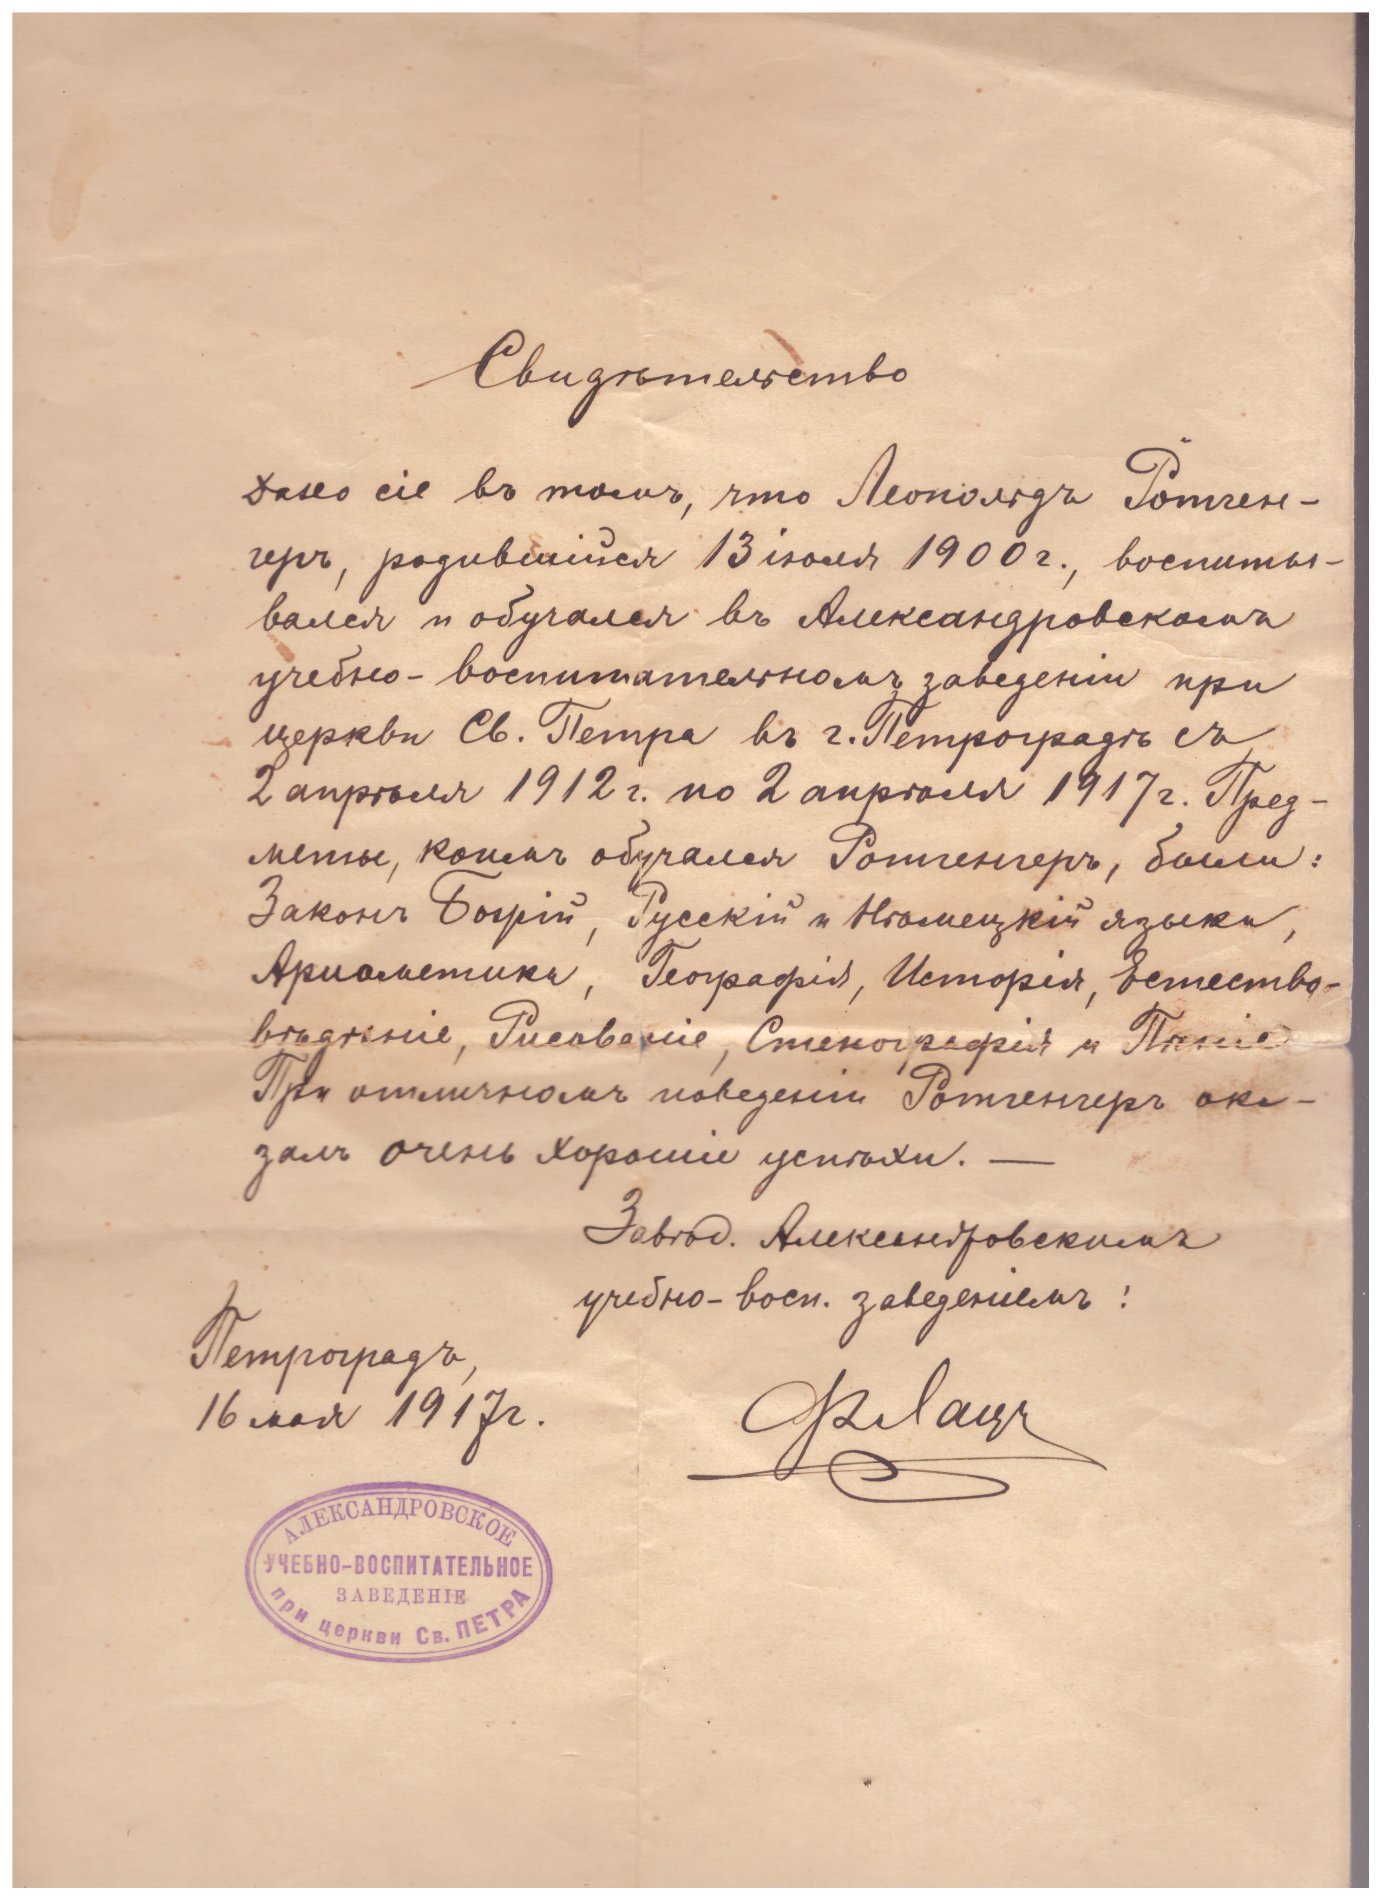 Свидѣтельство
Дано сіе въ томъ, что Леопольдъ Ротген-
геръ, родившійся 13 іюля 1900 г., воспиты-
вался и обучался въ Александровскомъ
учебно-воспитательномъ заведеніи при
церкви Св. Петра въ г. Петроградѣ съ
2 апрѣля 1912 г. по 2 апрѣля 1917 г. Пред-
меты, коимъ обучался Ротгенгеръ, были:
Законъ Божій, Русскій и Нѣмецкій языки,
Ариѳметика, Географія, Исторія, Естество-
вѣдѣніе, Рисованіе, Стенографія и Пѣніе
При отличномъ поведеніи Ротгенгеръ ока-
залъ очень хорошіе успѣхи. —
Завѣд. Александровскимъ
учебно-восп. заведеніемъ:
Петроградъ,
16 мая 1917 г.
АЛЕКСАНДРОВСКОЕ
УЧЕБНО-ВОСПИТАТЕЛЬНОЕ
ЗАВЕДЕНІЕ
при церкви Св. ПЕТРА